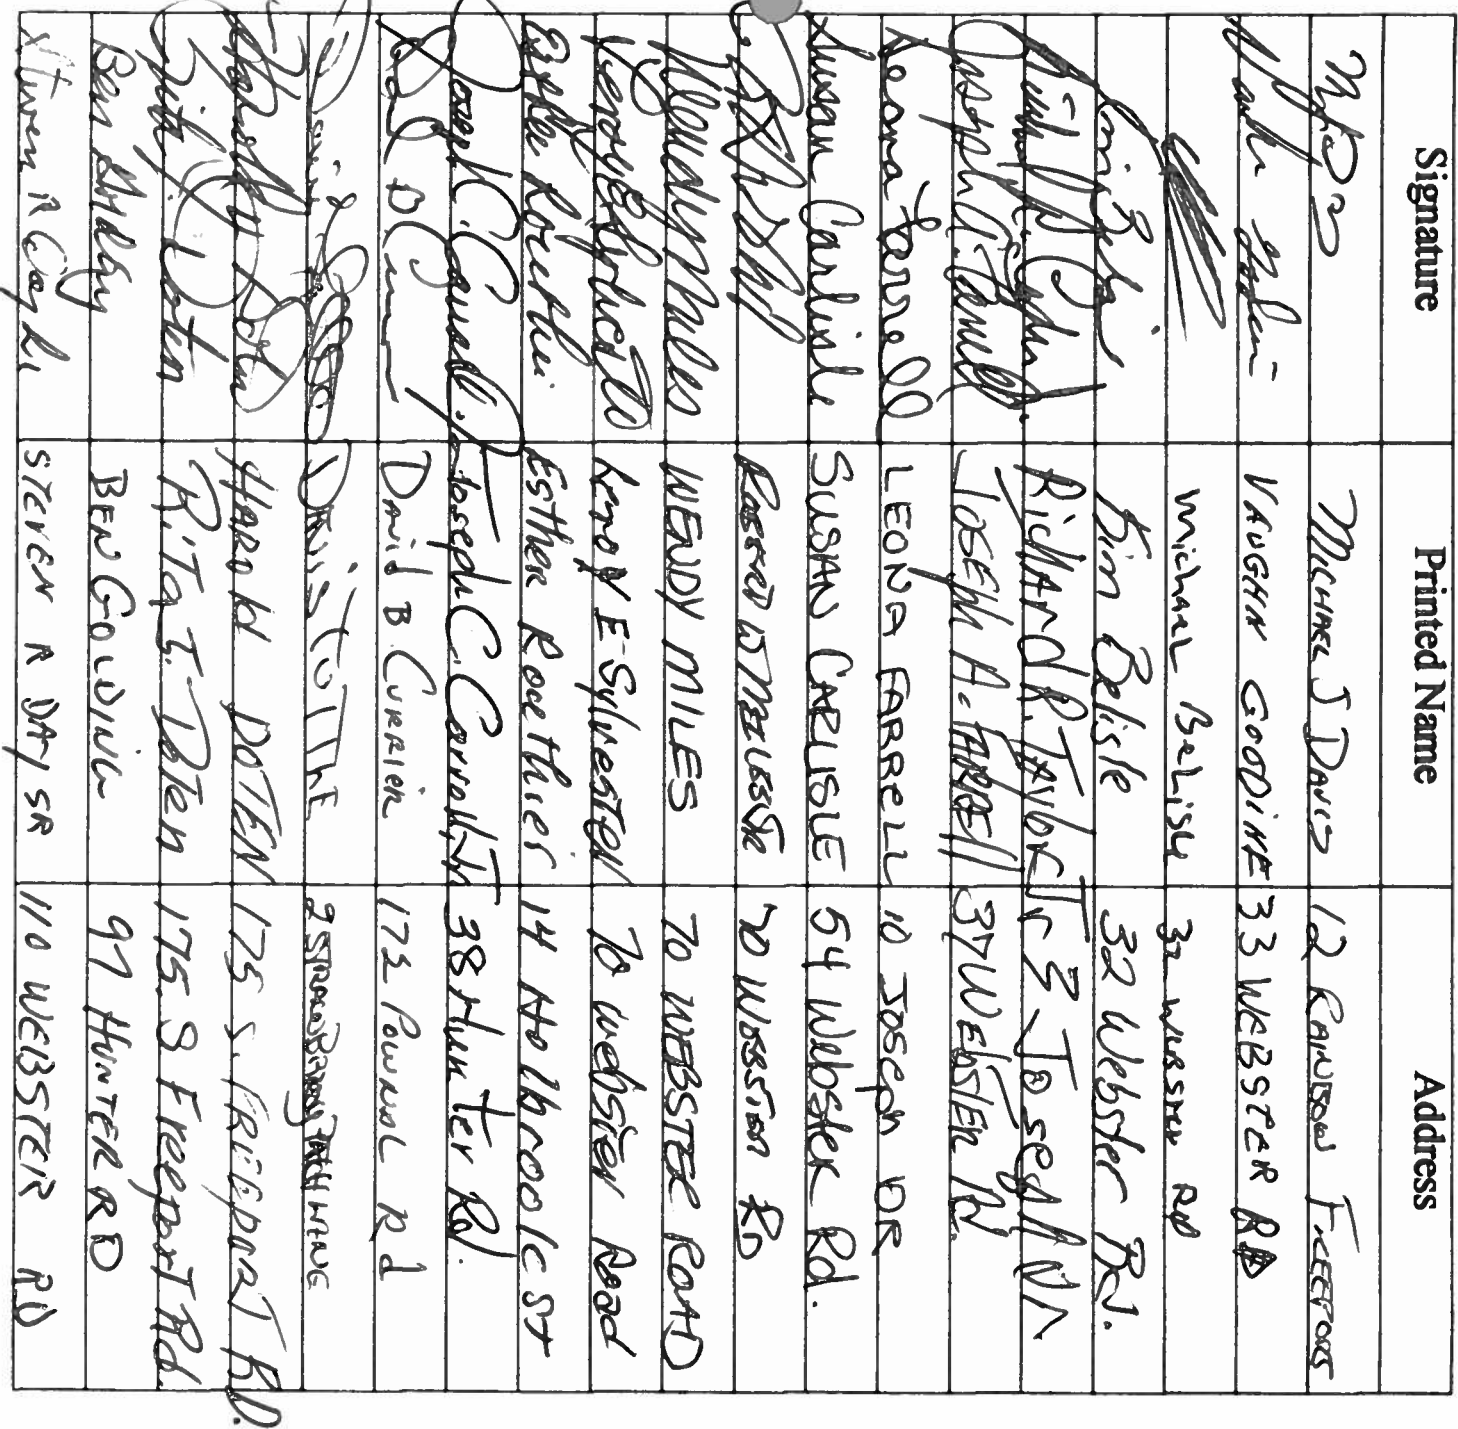 Signature Printed Name Address
MICHAEL J DAVIS 12 RAINBOW FREEPORT
VAUGHN GOODINE 33 WEBSTER RD
Michael Belisle 32 WEBSTER RD
Kim Belisle 32 Webster Rd.
Richard R. Taylor Jr 3 Joseph Dr
Joseph A. Farrell JOSEPH A. FARRELL 37 WEbSTER Rd.
Leona Farrell LEONA FARRELL 10 Joseph DR
Susan Carlisle SUSAN CARLISLE 54 Webster Rd.
70 WEBSTER RD
Wendy Miles WENDY MILES 70 WEBSTER ROAD
Leroy E Sylvester Leroy E Sylvester 70 Webster Road
Esther Routhier Esther Routhier 14 Holbrook St
Joseph C. Carroll Jr Joseph C. Carroll Jr 38 Hunter Rd.
David B. Currier 172 Pownal Rd
2
Harold Doten HAROld DOTEN 175 S. FREEPORT RD.
Rita J. Doten Rita J. Doten 175 S Freeport Rd.
Ben Golding BEN GOLDING 97 HUNTER RD
Steven R Day Sr STEVEN R DAY SR 110 WEBSTER RD